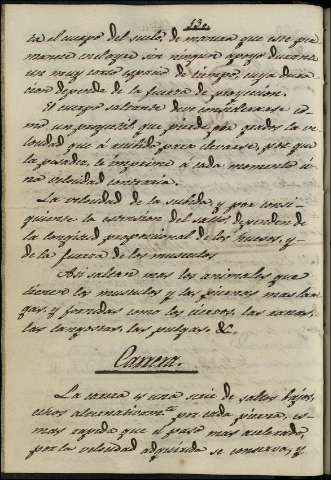 132.
ta el cuerpo del suelo, de manera que este per
manece en el ayre sin ningun apoyo durante
un muy corto espacio de tiempo, cuya dura
cion depende de la fuerza de proyeccion.
El cuerpo saltante debe considerarse co-
mo un proyectil que pierde por grados la ve-
locidad que á recibido para elevarse, por que
la pesadez le imprime á cada momento u
na velocidad contraria.
La velocidad de la subida, y por consi-
guiente la estension del salto, dependen de
la longitud proporcional de los huesos, y
de la fuerza de los musculos
Asi saltan mas los animales que
tienen los musculos y las piernas mas lar
gas, y fornidas como los ciervos, las ranas,
las langostas, las pulgas, &c.
Carrera.
La carrera es una serie de saltos bajos,
echos alternativam.te por cada pierna, es
mas rapida que el paso mas acelerado,
por la velocidad adquirida se conserva, y